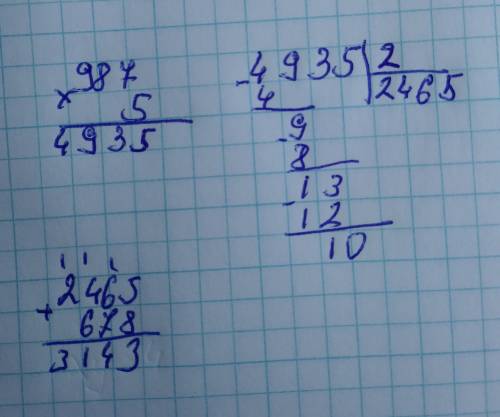 987
× 5
4935
- 4935 | 2
4 2465
- 9
8
- 13
12
10
1 1 1
2465
+ 678
3143